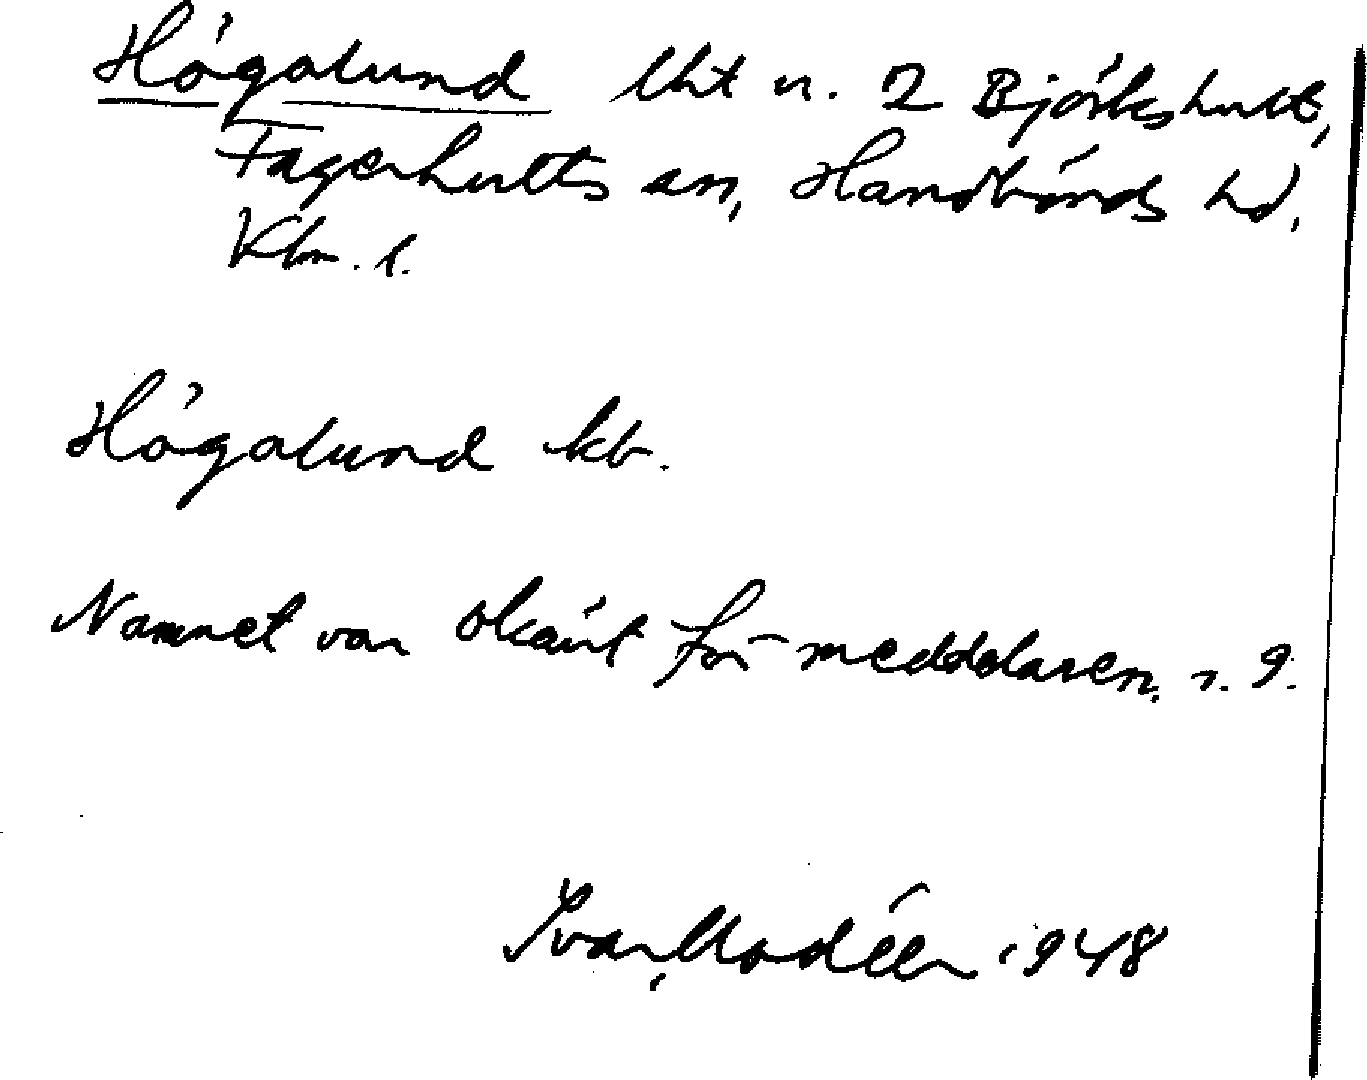 Högalund lht n. 2 Björkshult,
Fagerhults sn, Handbörds hd,
Klm. l.
Högalund kb.
Namnet var okänt för meddelaren. n. 9.
Ivar Modéer 1948